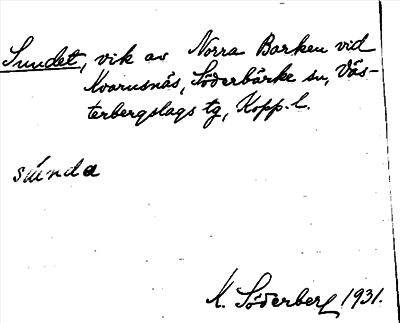 Sundet, vik av Norra Barken vid
Kvarnsnäs, Söderbärke sn, Väs-
terbergslags tg, Kopp. l.
súnda
K. Söderberg 1931.